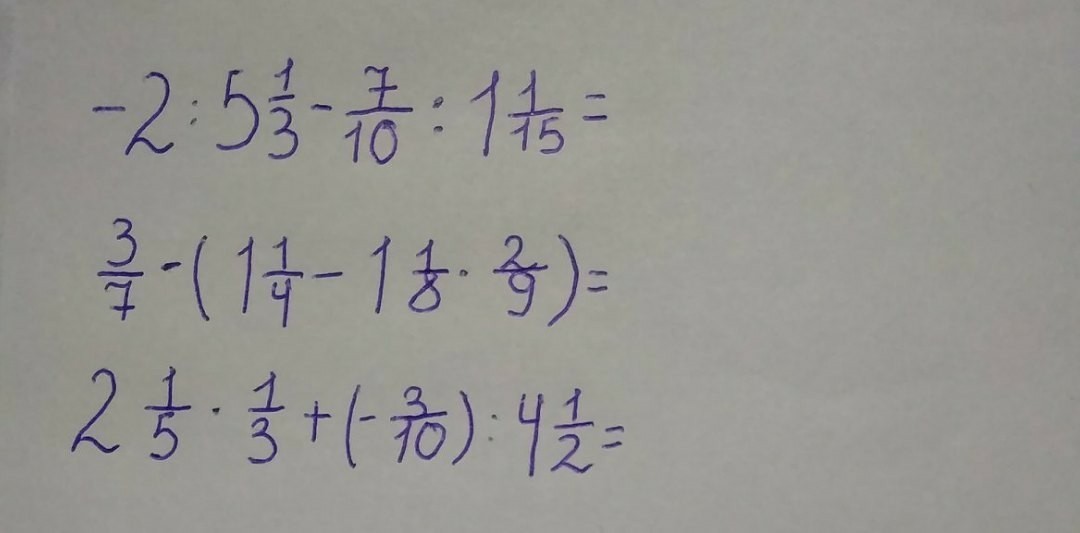 -2 : 5 1/3 - 7/10 : 1 1/15 =
3/7 - ( 1 1/4 - 1 1/8 · 2/9 ) =
2 1/5 · 1/3 + ( - 3/10 ) : 4 1/2 =